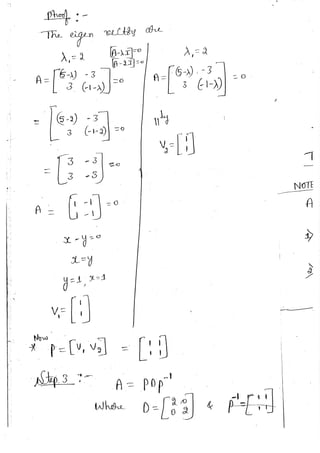 Proof :-
The eigen vectors are
λ₁ = 2
|A-λI|=0
|A-2I|=0
A = [(5-λ) -3
3 (-1-λ)] =0
= [(5-2) -3
3 (-1-2)] =0
= [3 -3
3 -3] =0
A = [1 -1
1 -1] =0
x - y = 0
x = y
y = 1, x = 1
V₁ = [1
1]
λ₁ = 2
A = [(5-λ) -3
3 (-1-λ)] = 0
||ly
V₂ = [1
1]
NOTE
A
1)
2)
Now
* P = [V₁ V₂] = [1 1
1 1]
Step 3 :-
A = PDP⁻¹
Where D = [2 0
0 2] & P⁻¹ = [1 1
1 1]